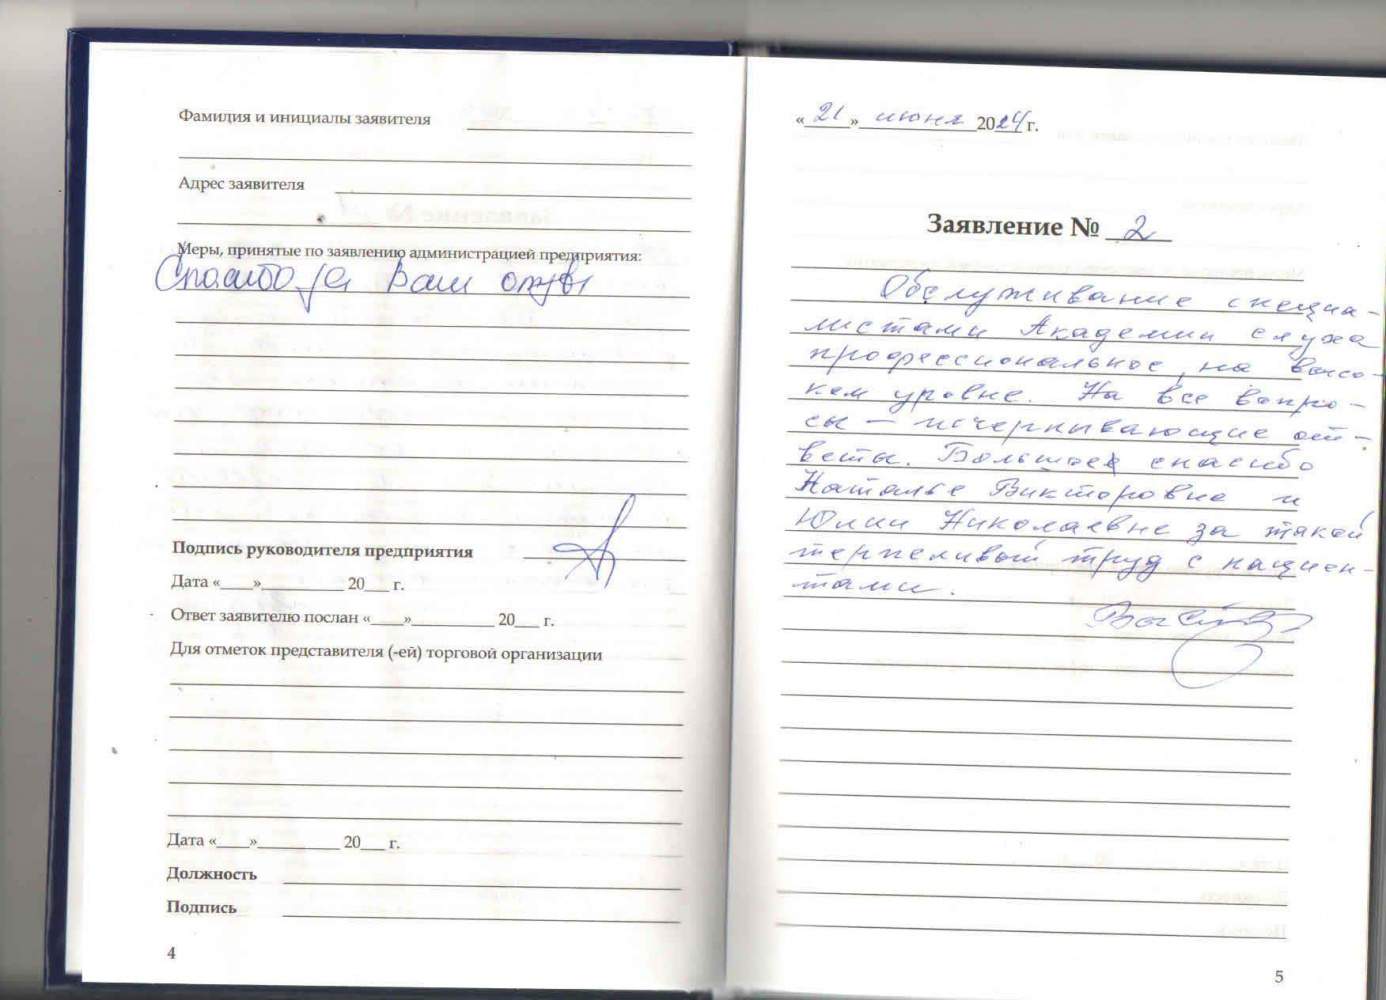 Фамилия и инициалы заявителя
Адрес заявителя
Меры, принятые по заявлению администрацией предприятия:
Спасибо за Ваш отзыв
Подпись руководителя предприятия
Дата «___»__________ 20___ г.
Ответ заявителю послан «___»__________ 20___ г.
Для отметок представителя (-ей) торговой организации
Дата «___»__________ 20___ г.
Должность
Подпись
4
«21» июня 2024 г.
Заявление № 2
Обслуживание специа-
листами Академии слуха
профессиональное, на высо-
ком уровне. На все вопро-
сы – исчерпывающие от-
веты. Большое спасибо
Наталье Викторовне и
Юлии Николаевне за такой
терпеливый труд с пациен-
тами.
5